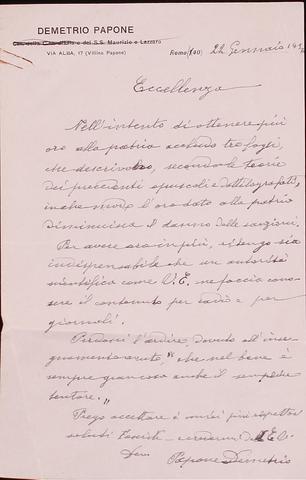 DEMETRIO PAPONE
Cav. della e dei S.S. Maurizio e Lazzaro
VIA ALBA, 17 (Villino Papone)
Roma (140) 22 Gennaio
Eccellenza
Nell'intento di ottenere più
oro alla patria accludo tre fogli,
che descrivono, secondo le teorie
dei precedenti opuscoli e dattilografati,
in che modo l'oro dato alla patria
diminuisca il danno delle sanzioni.
Per avere oro in più, ritengo sia
indispensabile che un autorità
scientifica come V.E. ne faccia cono
scere il contenuto per radio e per
giornali.
Perdoni l'ardire dovuto all'inse
gnamento avuto, "che nel bene è
sempre grancosa anche il semplice
tentare."
Prego accettare i miei più rispettosi
saluti fascisti
Papone Demetrio